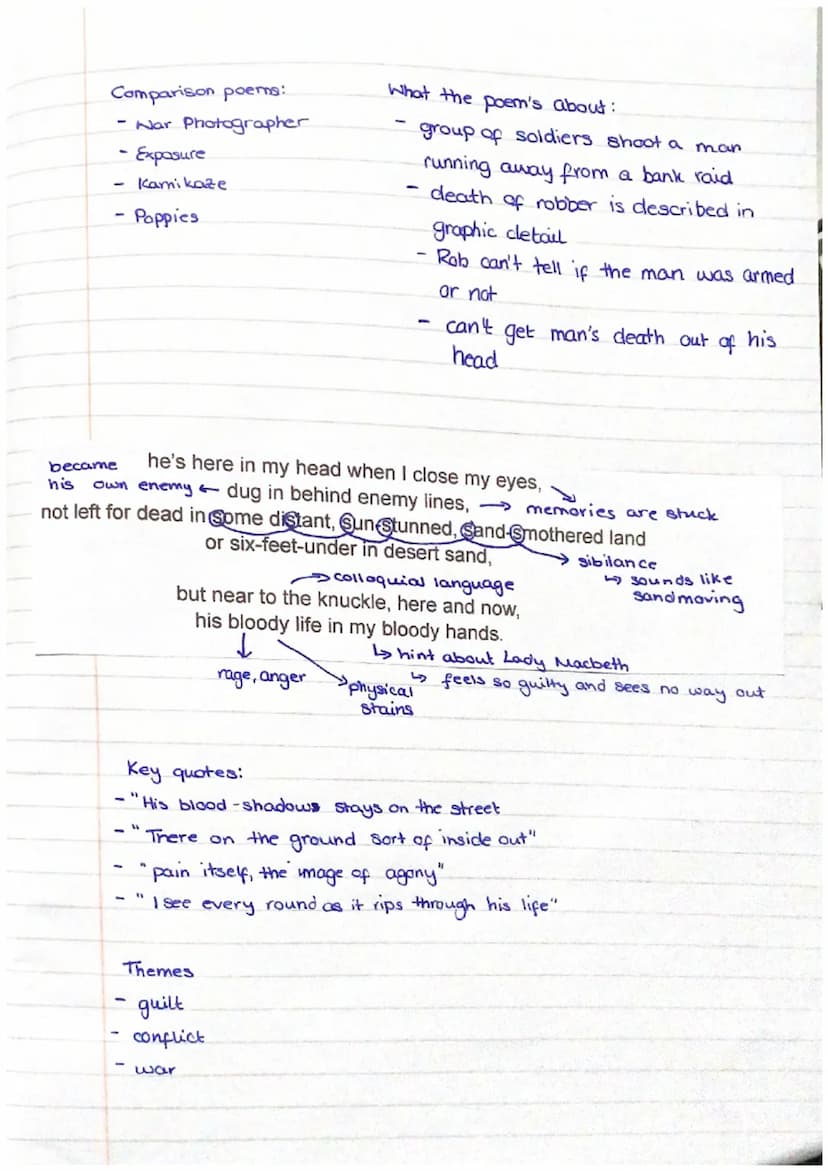 Comparison poems:
- War Photographer
- Exposure
- Kamikaze
- Poppies
What the poem's about:
- group of soldiers shoot a man
running away from a bank raid
- death of robber is described in
graphic detail
- Rob can't tell if the man was armed
or not
- can't get man's death out of his
head
became
his own enemy ←
he's here in my head when I close my eyes,
dug in behind enemy lines,
→ memories are stuck
not left for dead in some distant, sun-stunned, sand-smothered land
or six-feet-under in desert sand,
→ sibilance
↳ sounds like
sand moving
→ colloquial language
but near to the knuckle, here and now,
his bloody life in my bloody hands.
↳ hint about Lady Macbeth
↳ feels so guilty and sees no way out
rage, anger
physical
stains
Key quotes:
- "His blood-shadows stays on the street
- "There on the ground sort of inside out"
- "pain itself, the image of agony"
- "I see every round as it rips through his life"
Themes
- guilt
- conflict
- war